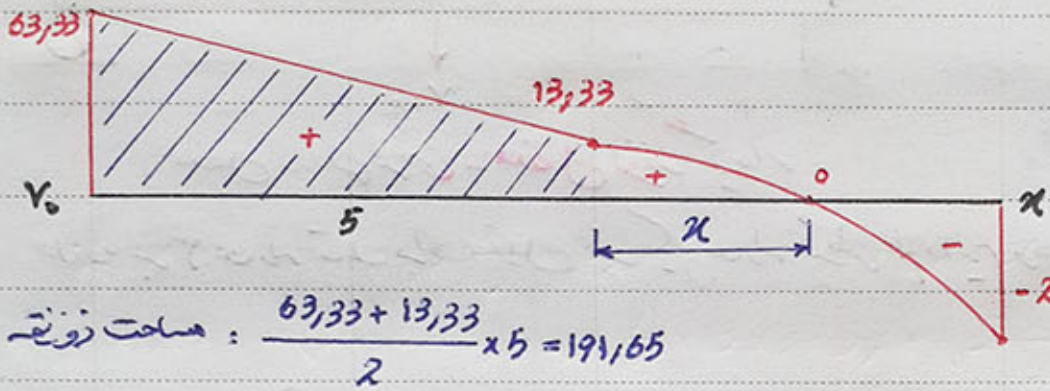 63,33
13,33
+
+
0
V₀
5
x
x
-
-2
مساحت ذوزنقه : (63,33 + 13,33)/2 × 5 = 191,65